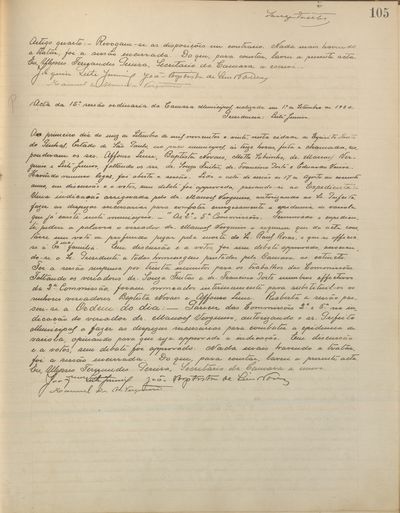 105
Artigo quarto - Revogam-se as disposições em contrario. Nada mais havendo
a tratar, foi a sessão encerrada. Do que, para constar, lavrei a presente acta
Eu, Ulysses Fernandes Pereira, Secretario da Camara, a escrevi.
Leite Junior João Baptista de
Manuel
Acta da 15ª sessão ordinaria da Camara Municipal, realizada em 1º de Setembro de
Presidencia: Leite Junior
Ao primeiro dia do mez de Setembro de mil novecentos e vinte, nesta cidade, de Espirito Santo
do Pinhal, Estado de São Paulo, no paço municipal, ás treze horas, feita a chamada, res-
ponderam os srs. Affonso Lima, Baptista Novaes, de Marcos Ver-
gueiro e Leite Junior, faltando os srs. de Souza Freitas, de Francisco Porto e
Havendo numero legal, foi aberta a sessão. Lida a acta da sessão de 17 de Agosto
anno, em discussão e a votos, sem debate foi approvada, passando-se ao Expediente:
Uma indicação assignada pelo dr. Manoel Vergueiro, autorizando ao Sr. Prefeito
fazer as despezas necessarias para combater energicamente a epidemia de variola
que já existe neste municipio - Ás 2ª e 5ª Commissões. Terminado o expedien-
te, pediu a palavra o vereador dr. Manoel Vergueiro e requereu que da acta cons-
tasse um voto de profundo pezar pela morte do Sr. e que se officias-
se á Exma familia. Em discussão e a votos, foi sem debate approvado, associan-
do-se o Sr. Presidente a todas homenagens prestadas pela Camara ao extincto.
Foi a sessão suspensa por trinta minutos para os trabalhos das Commissões.
Faltando os vereadores dr. Souza Freitas e dr. Francisco Porto, membros effectivos
da 2ª Commissão, foram nomeados interinamente para substituil-os os
senhores vereadores Baptista Novaes e Affonso Lima. Reaberta a sessão, pas-
sou-se a Ordem do dia: - Parecer das Commissões 2ª e 5ª na in-
dicação do vereador dr. Manoel Vergueiro, autorizando o sr. Prefeito
Municipal a fazer as despezas necessarias para combater a epidemia de
variola, opinando para que seja approvada a indicação. Em discussão
e a votos, sem debate foi approvado. Nada mais havendo a tratar,
foi a sessão encerrada. Do que, para constar, lavrei a presente acta.
Eu, Ulysses Fernandes Pereira, Secretario da Camara a escrevi
Leite Junior João Baptista de
Manuel